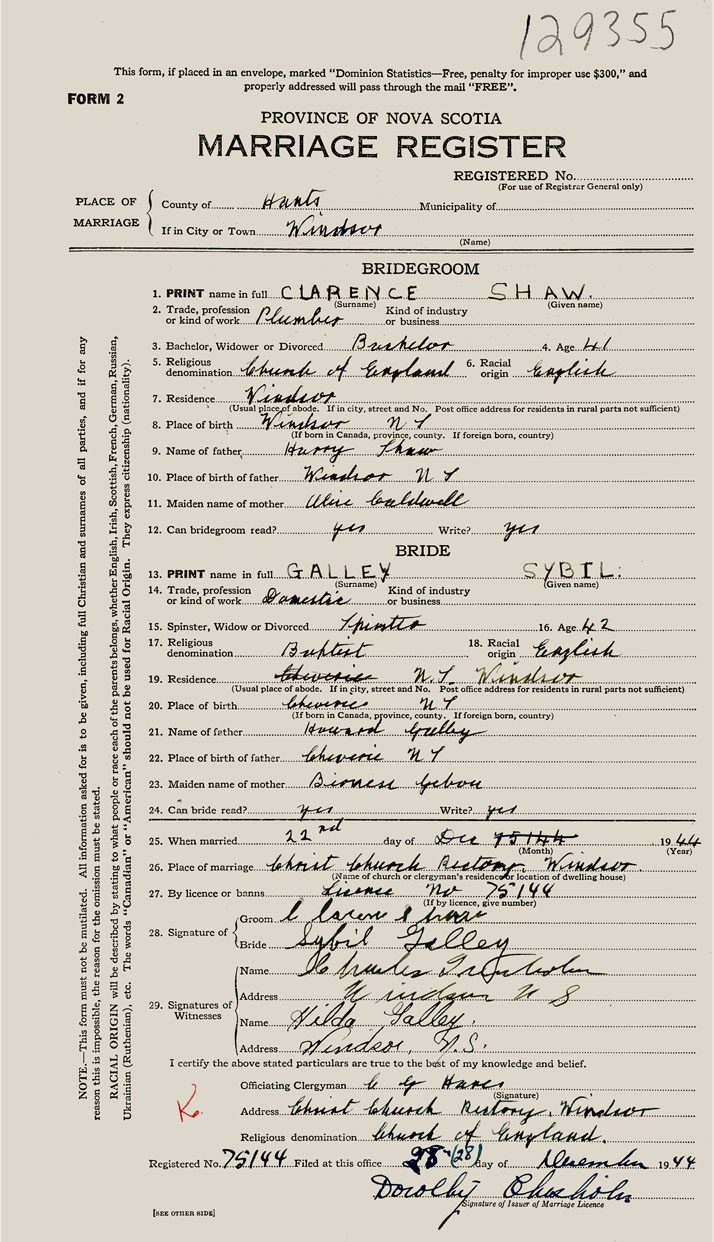 129355
This form, if placed in an envelope, marked "Dominion Statistics—Free, penalty for improper use $300," and
properly addressed will pass through the mail "FREE".
FORM 2
PROVINCE OF NOVA SCOTIA
MARRIAGE REGISTER
REGISTERED No.
(For use of Registrar General only)
PLACE OF MARRIAGE
County of Hants Municipality of
If in City or Town Windsor
(Name)
BRIDEGROOM
1. PRINT name in full CLARENCE SHAW.
(Surname) (Given name)
2. Trade, profession or kind of work Plumber Kind of industry or business
3. Bachelor, Widower or Divorced Bachelor 4. Age 41
5. Religious denomination Church of England 6. Racial origin English
7. Residence Windsor
(Usual place of abode. If in city, street and No. Post office address for residents in rural parts not sufficient)
8. Place of birth Windsor N S
(If born in Canada, province, county. If foreign born, country)
9. Name of father Harry Shaw
10. Place of birth of father Windsor N S
11. Maiden name of mother Alice Caldwell
12. Can bridegroom read? yes Write? yes
BRIDE
13. PRINT name in full GALLEY SYBIL.
(Surname) (Given name)
14. Trade, profession or kind of work Domestic Kind of industry or business
15. Spinster, Widow or Divorced Spinster 16. Age 42
17. Religious denomination Baptist 18. Racial origin English
19. Residence Cheverie N.S. Windsor
(Usual place of abode. If in city, street and No. Post office address for residents in rural parts not sufficient)
20. Place of birth Cheverie N S
(If born in Canada, province, county. If foreign born, country)
21. Name of father Howard Galley
22. Place of birth of father Cheverie N S
23. Maiden name of mother
24. Can bride read? yes Write? yes
25. When married 22nd day of Dec 75144 1944
(Month) (Year)
26. Place of marriage Christ Church Rectory, Windsor
(Name of church or clergyman's residence or location of dwelling house)
27. By licence or banns Licence No 75144
(If by licence, give number)
28. Signature of
Groom Clarence Shaw
Bride Sybil Galley
29. Signatures of Witnesses
Name Charles Trenholm
Address Windsor N S
Name Hilda Galley.
Address Windsor, N.S.
I certify the above stated particulars are true to the best of my knowledge and belief.
Officiating Clergyman C G
(Signature)
K.
Address Christ Church Rectory, Windsor
Religious denomination Church of England.
Registered No. 75144 Filed at this office 28 (28) day of December 1944
Dorothy Chisholm
Signature of Issuer of Marriage Licence
[SEE OTHER SIDE]
NOTE.—This form must not be mutilated. All information asked for is to be given, including full Christian and surnames of all parties, and if for any
reason this is impossible, the reason for the omission must be stated.
RACIAL ORIGIN will be described by stating to what people or race each of the parents belongs, whether English, Irish, Scottish, French, German, Russian,
Ukrainian (Ruthenian), etc. The words "Canadian" or "American" should not be used for Racial Origin. They express citizenship (nationality).